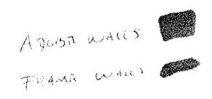 ADOBE WALLS
FRAME WALLS